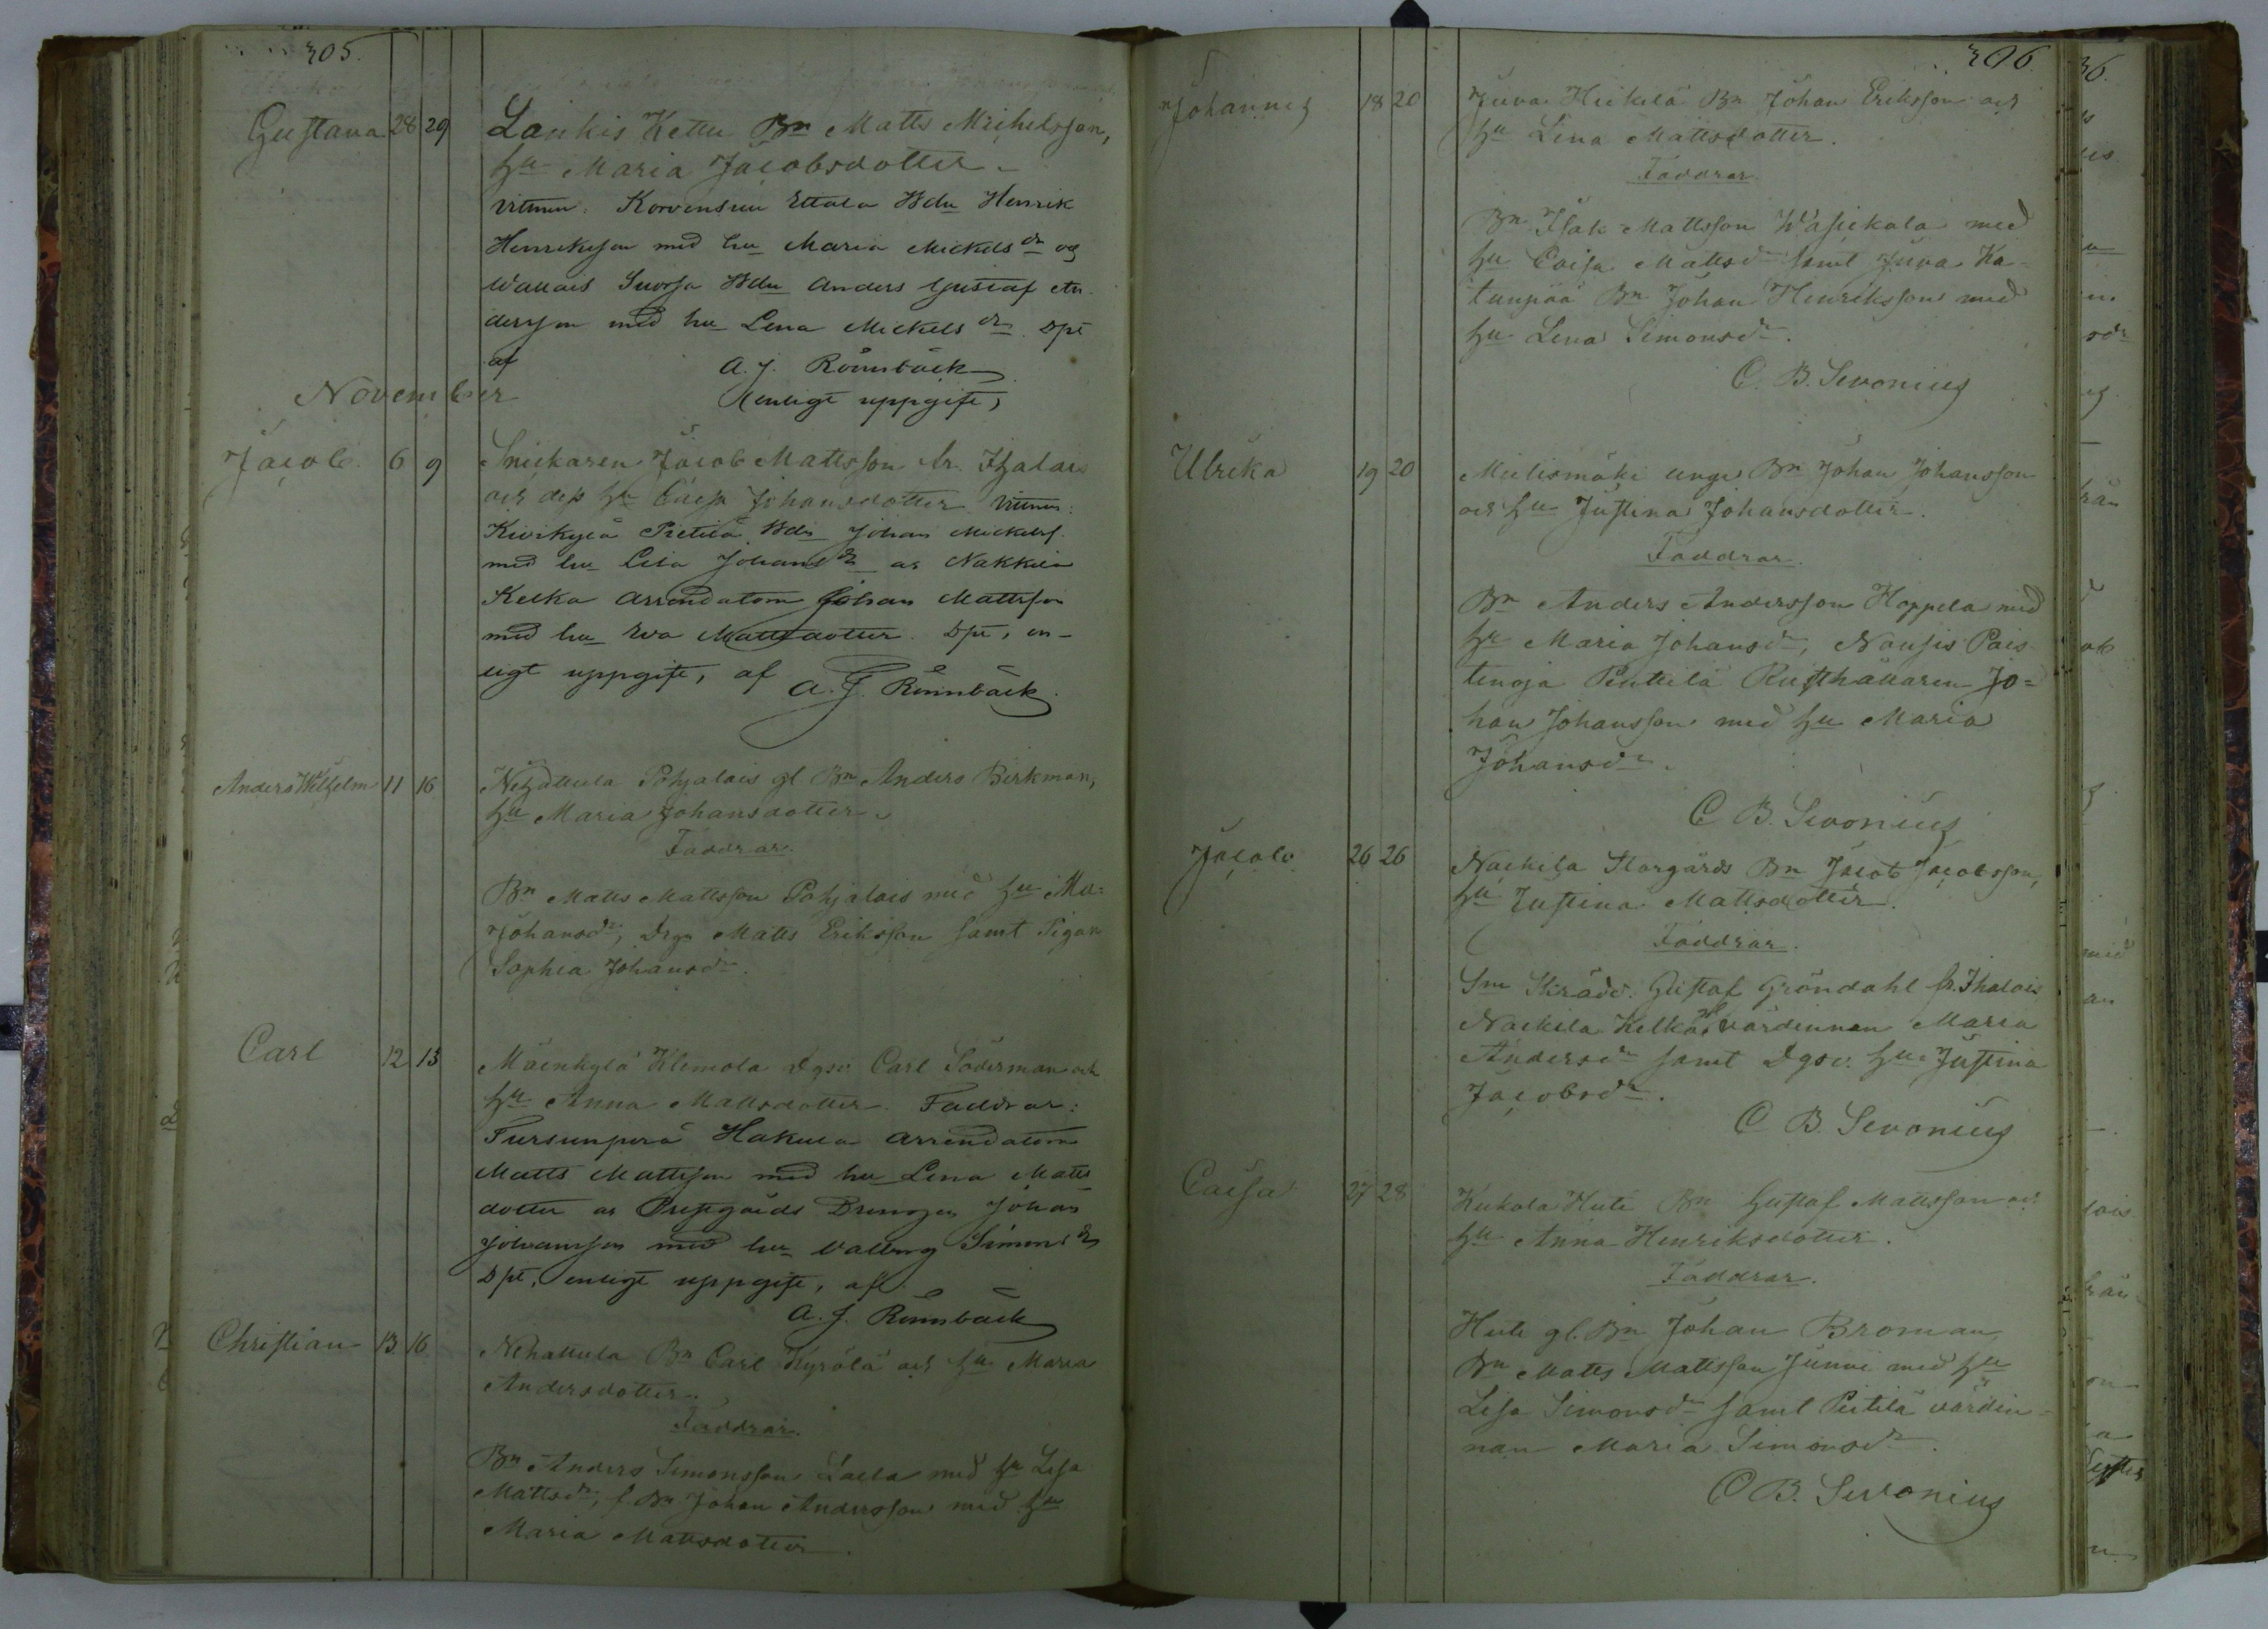 305.
Gustava 28 29 Laukis Kettu Bn Matts Michelsson,
hu Maria Jacobsdotter
Vittnen: Korvensuu Ettala Bdn Henrik
Henriksson med hu Maria Mickelsdr og
Wallais Suorsa Bdn Anders Gustaf An-
dersson med hu Lena Mickelsdr. Dpt
af A. J. Rönnbäck
(enligt uppgift)
November
Jacob 6 9 Snickaren Jacob Mattsson fr. Ihalais
och dess hu Caisa Johansdotter Vittnen:
Kivikylä Pietilä Bdn Johan Mickelss.
med hu Lisa Johansdr as Nakkila
Kelka arrendatorn Johan Mattsson
med hu Eva Mattsdotter. Dpt, en-
ligt uppgift, af A. J. Rönnbäck.
Anders Wilhelm 11 16 Nehattula Pohjalais gl Bn Anders Birkman,
hu Maria Johansdotter
Faddrar.
Bn Matts Mattsson Pohjalais med hu Ma:
Johansdr, Drgn Matts Eriksson samt Pigan
Sophia Johansdr.
Carl 12 13 Mäenkylä Klemola Dgsv. Carl Söderman och
hu Anna Mattsdotter. Faddrar:
Tursunperä Hakula arrendatorn
Matts Mattsson med hu Lena Matts
dotter as Prestgårds Drengen Johan
Johansson med hu Valborg Simonsdr
Dpt, enligt uppgift, af
A. J. Rönnbäck
Christian 13 16 Nehattula Bn Carl Kyrölä och hu Maria
Andersdotter.
Faddrar.
Bn Anders Simonsson Laella med hu Lisa
Mattsdr, f. Bn Johan Andersson med hu
Maria Mattsdotter.
306.
Johannes 18 20 Juva Heikilä Bn Johan Eriksson och
hu Lina Mattsdotter.
Faddrar.
Bn Isak Mattsson Wäsickala med
hu Caisa Mattsdr samt Juva Ka-
tanpää Bn Johan Henriksson med
hu Lena Simonsdr.
C. B. Sevonius
Ulrika 19 20 Mielismäki unge Bn Johan Johansson
och hu Justina Johansdotter.
Faddrar.
Bn Anders Andersson Hoppela med
hu Maria Johansdr, Nousis Pais
tenoja Penttilä Rusthållaren Jo=
han Johansson med hu Maria
Johansdr.
C B. Sevonius
Jacob 26 26 Nackila Storgårds Bn Jacob Jacobsson,
hu Justina Mattsdotter.
Faddrar.
Sm Skrädd. Gustaf Gröndahl fr. Ihalais
Nackila Kelka gl värdinnan Maria
Andersdr samt Dgsv. hu Justina
Jacobsdr.
C B. Sevonius
Caisa 27 28 Kukola Huti Bn Gustaf Mattsson och
hu Anna Henriksdotter.
Faddrar.
Huti gl. Bn Johan Broman,
Bn Matts Mattsson Junni med hu
Lisa Simonsdr samt Pietilä värdin=
nan Maria Simonsdr.
C B. Sevonius